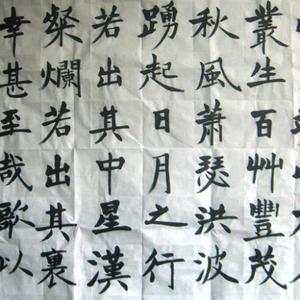 叢生百艸豐茂
秋風蕭瑟洪波
踴起日月之行
若出其中星漢
粲爛若出其裏
幸甚至哉歌以